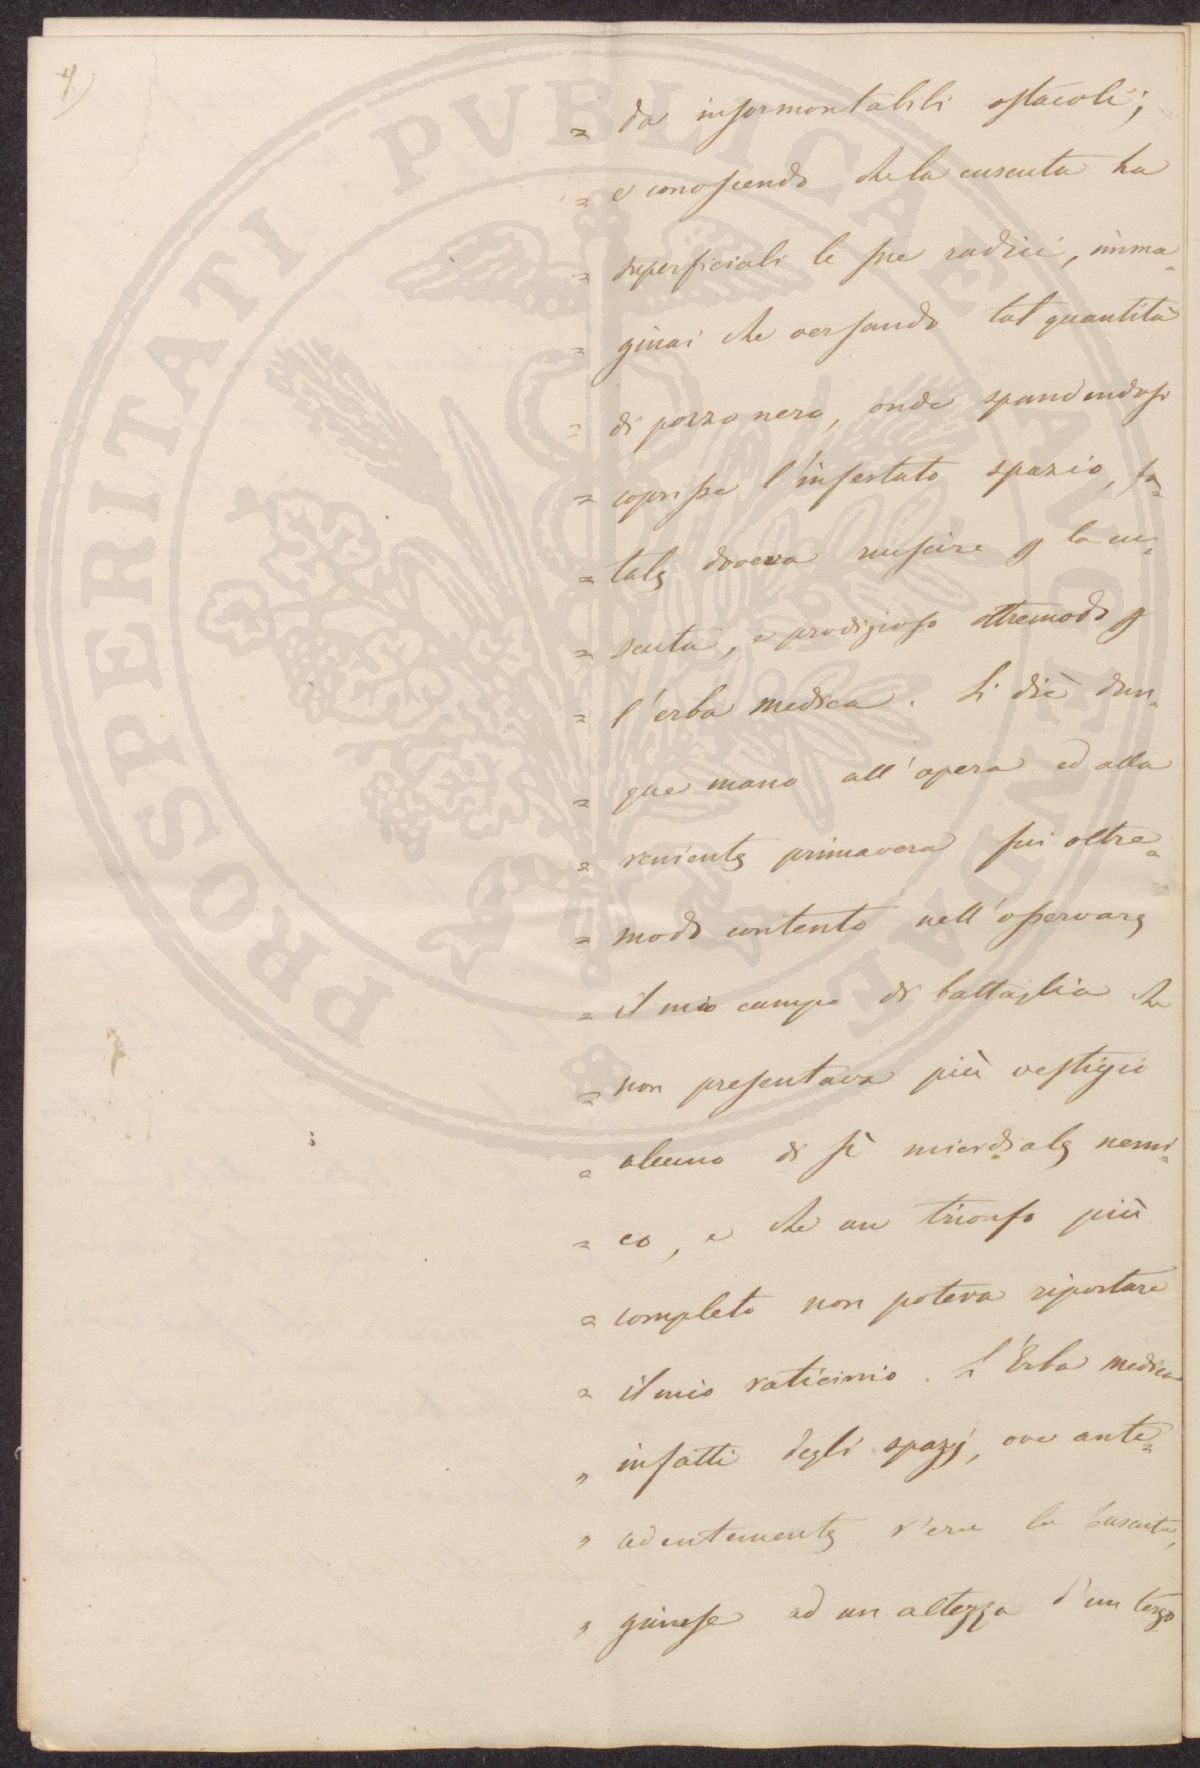 4)
= da insormontabili ostacoli;
= e conoscendo che la cuscuta ha
= superficiali le sue radici, imma=
= ginai che versando tal quantità
= di pozzo nero, onde spandendosi
= coprisse l'infestato spazio, fa=
= tale doveva riuscire p la cu=
= scuta, e prodigioso oltremodo p
= l'erba medica. Si diè dun=
= que mano all'opera ed alla
= veniente primavera fui oltre=
= modo contento nell'osservare
= il mio campo di battaglia che
= non presentava più vestigio
= alcuno di sì micidiale nemi=
= co, e che un trionfo più
= completo non poteva riportare
= il mio vaticinio. L'Erba medica
" infatti degli spazj, ove ante=
" cedentemente v'era la Cuscuta,
" giunse ad un altezza d'un terzo
PROSPERITATI PVBLICAE AVGENDAE